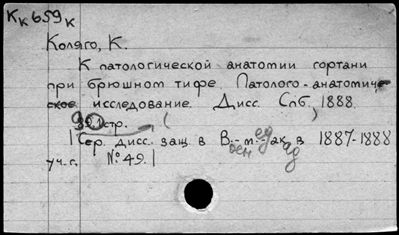 Кк 659к
Коляго, К.
К патологической анатомии гортани
при брюшном тифе. Патолого-анатомиче-
ское исследование. Дисс. Спб. 1888.
стр. ( )
| Сер. дисс. защ. в Воен.-мед. акад. в 1887-1888
уч. г. №49. |